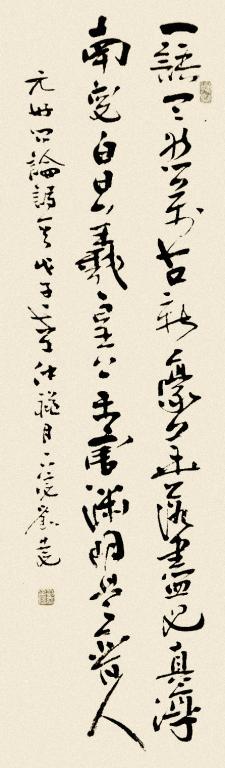 一語天然萬古新豪華落盡見真淳
南窗白日羲皇上未害淵明是晉人
元好問論詩 戊子 月 劉